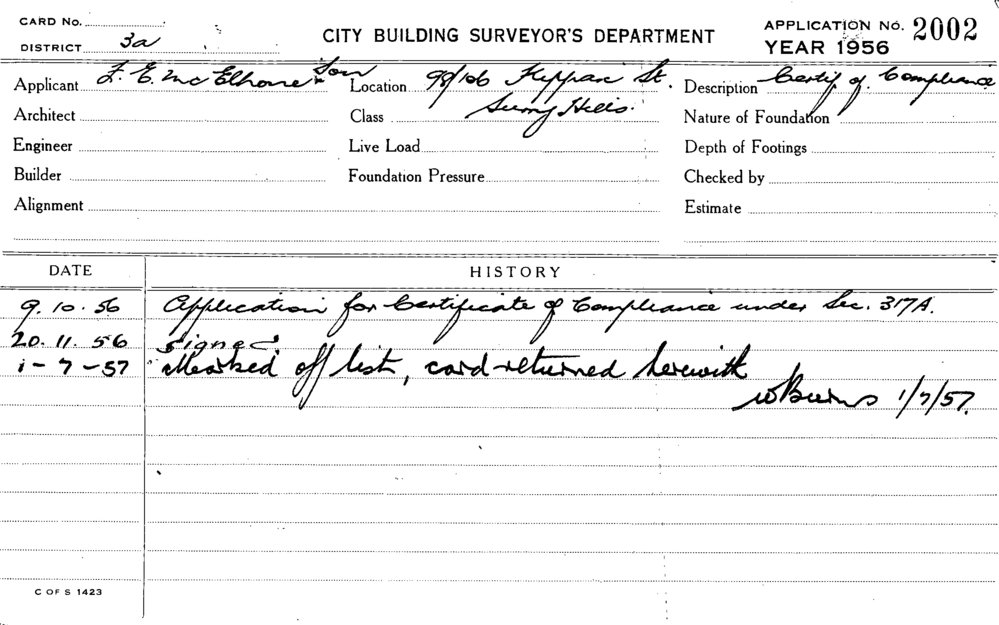 CARD No.
DISTRICT 3a
CITY BUILDING SURVEYOR'S DEPARTMENT
APPLICATION No. 2002
YEAR 1956
Applicant F. E. McElhone & Son
Location 98/106 Kippax St.
Surry Hills.
Description Certif. of Compliance
Architect
Class
Nature of Foundation
Engineer
Live Load
Depth of Footings
Builder
Foundation Pressure
Checked by
Alignment
Estimate
DATE HISTORY
9.10.56 Application for Certificate of Compliance under Sec. 317A.
20.11.56 Signed
1-7-57 Marked off list, card returned herewith
W Burns 1/7/57.
C OF S 1423